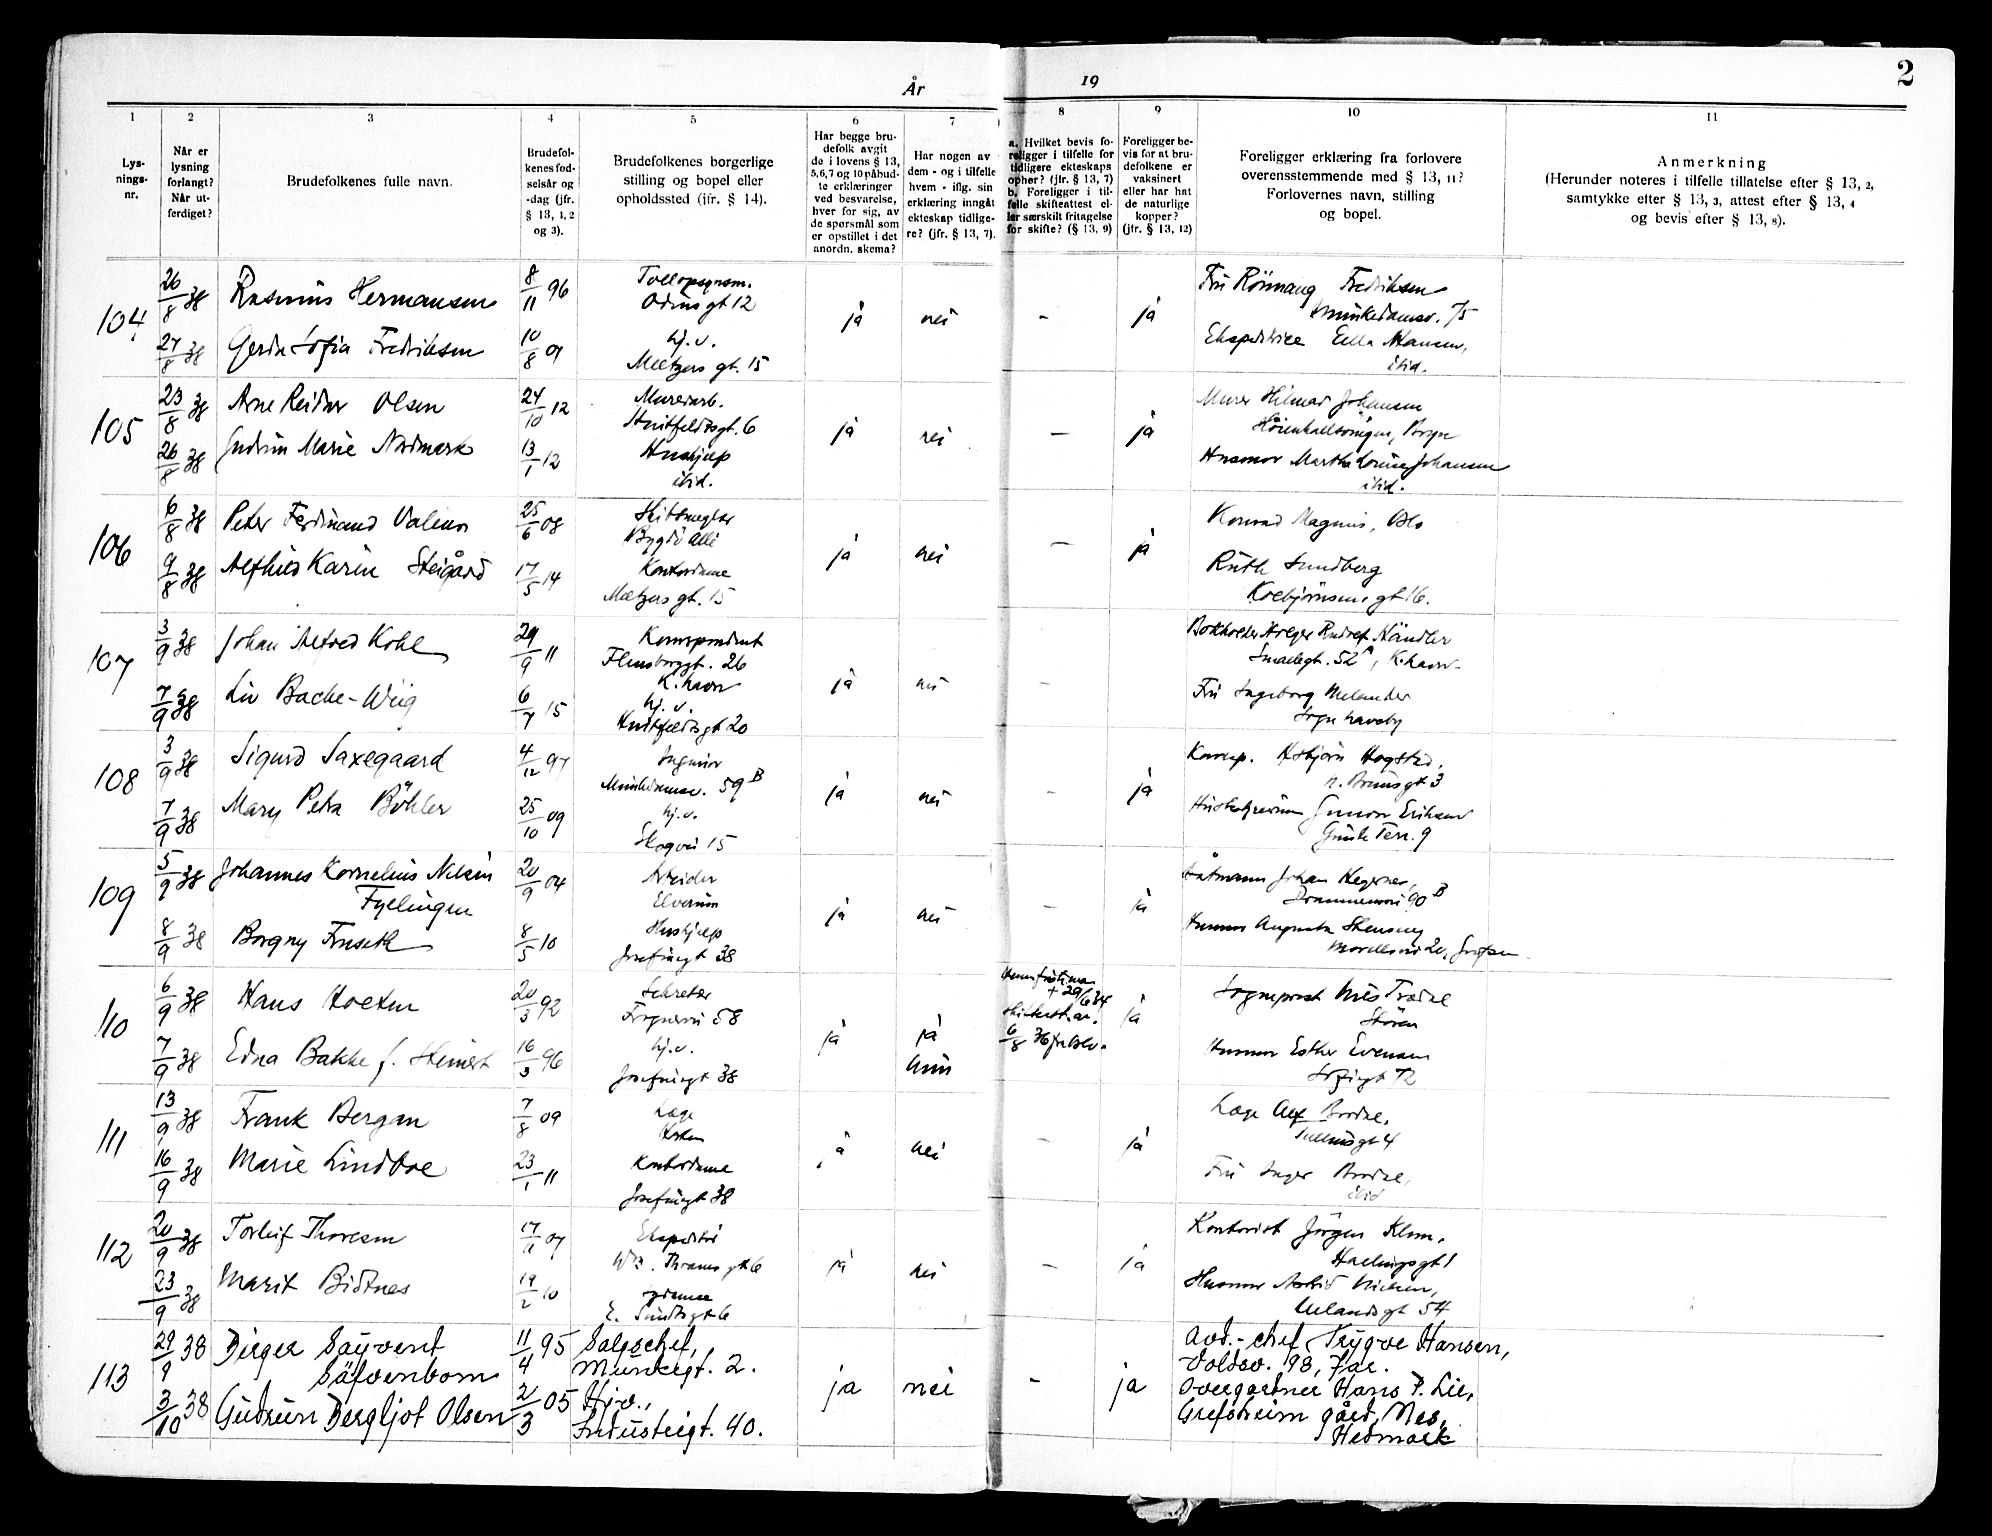 År 19
2
1 2 3 4 5 6 7 8 9 10 11
Lys-
nings-
nr.
Når er
lysning
forlangt?
Når ut-
ferdiget?
Brudefolkenes fulle navn.
Brudefol-
kenes fød-
selsår og
-dag (jfr.
§ 13, 1, 2
og 3).
Brudefolkenes borgerlige
stilling og bopel eller
opholdssted (jfr. § 14).
Har begge bru-
defolk avgit
de i lovens § 13,
5,6,7 og 10 påbud-
te erklæringer
ved besvarelse,
hver for sig, av
de spørsmål som
er opstillet i det
anordn. skema?
Har nogen av
dem - og i tilfelle
hvem - iflg. sin
erklæring inngått
ekteskap tidlige-
re? (jfr. § 13, 7).
a. Hvilket bevis fo-
religger i tilfelle for
tidligere ekteskaps
ophør? (jfr. § 13, 7)
b. Foreligger i til-
felle skifteattest el-
ler særskilt fritagelse
for skifte? (§ 13, 9)
Foreligger be-
vis for at bru-
defolkene er
vaksinert
eller har hat
de naturlige
kopper?
(jfr. § 13, 12)
Foreligger erklæring fra forlovere
overensstemmende med § 13, 11?
Forlovernes navn, stilling
og bopel.
Anmerkning
(Herunder noteres i tilfelle tillatelse efter § 13, 2,
samtykke efter § 13, 3, attest efter § 13, 4
og bevis efter § 13, 8).
104
26/8 38 Rasmus Hermansen 8/11 96
Odinsgt 12
27/8 38 Gerda Sofia Fredriksen 10/8 09 hj.v.
Meltzers gt. 15
ja nei - ja
Fru Rönnaug Fredriksen
Munkedamsv. 75
Ekspeditrice Ella Hansen,
ibid.
105
23/8 38 Arne Reidar Olsen 24/10 12 Murerarb.
Huitfeldtsgt. 6
26/8 38 Gudrun Marie Nordmark 13/1 12 Hushjelp
ibid.
ja nei - ja
Murer Hilmar Johansen
Bryn
Husmor Martha Lovise Johansen
ibid.
106
6/8 38 Peter Ferdinand 25/6 08 Skibsmegler
Bygdö Allé
9/8 38 Alfhild Karin Steigård 17/5 14 Kontordame
Meltzers gt. 15
ja nei - ja
Konrad Magnus, Oslo
Ruth Sundberg
107
3/9 38 Johan Alfred Kohl 29/9 11 Korrespondent
Flensborggt. 26
K.havn
7/9 38 Liv Bache-Wiig 6/7 15 hj.v.
Huitfeldtsgt 20
ja nei -
Bokholder Holger Rudolf Händler
52 A, K.havn.
Fru Ingeborg Melander
108
3/9 38 Sigurd Saxegaard 4/12 97 Ingeniør
Munkedamsv. 59 B
7/9 38 Mary Petra Böhler 25/10 09 hj.v.
Skogvei 15
ja nei - ja
Korresp. Asbjörn Hogstad,
Gunvor Eriksen
109
5/9 38 Johannes Kornelius Nilsen
Fyllingen 20/9 04 Arbeider
Elverum
8/9 38 Borgny Fruseth 8/5 10 Hushjelp
Josefinegt 38
ja nei - ja
Johan
Drammensvei 90 B
Husmor Augusta
110
6/9 38 Hans Holtem 20/3 92 Sekretær
Frognervei 58
7/9 38 Edna Bakke f. Steinert 16/3 96 hj.v.
Josefinegt 38
ja ja
hun
ja
Sogneprest Nils Trædal
Stören
Husmor Esther Evensen
Sofiegt 72
111
13/9 38 Frank Bergan 7/8 09 Læge
16/9 38 Marie Lindboe 23/1 11 Kontordame
Josefinegt 38
ja nei - ja
Læge Alf
Tullinsgt 4
Fru Inger
ibid
112
20/9 38 Torleif Thoresen 17/11 07
Wilh. Thranes gt 6
23/9 38 Marit Bistnes 19/2 10
E. Sundtsgt 6
ja nei - ja
Kontorist Jörgen Klem,
Hallingsgt 1
Husmor Astrid Nielsen,
Uelandsgt 54
113
29/9 38 Birger Sayvent
Säfvenbom 11/4 95 Salgschef,
Munkegt. 2.
3/10 38 Gudrun Bergljot Olsen 2/3 05 Hjv.,
Industrigt. 40.
ja nei - ja
Avd.-chef Trygve Hansen,
Voldsv. 98,
Overgartner Hans P. Lie,
Grefsheim gård, Nes,
Hedmark